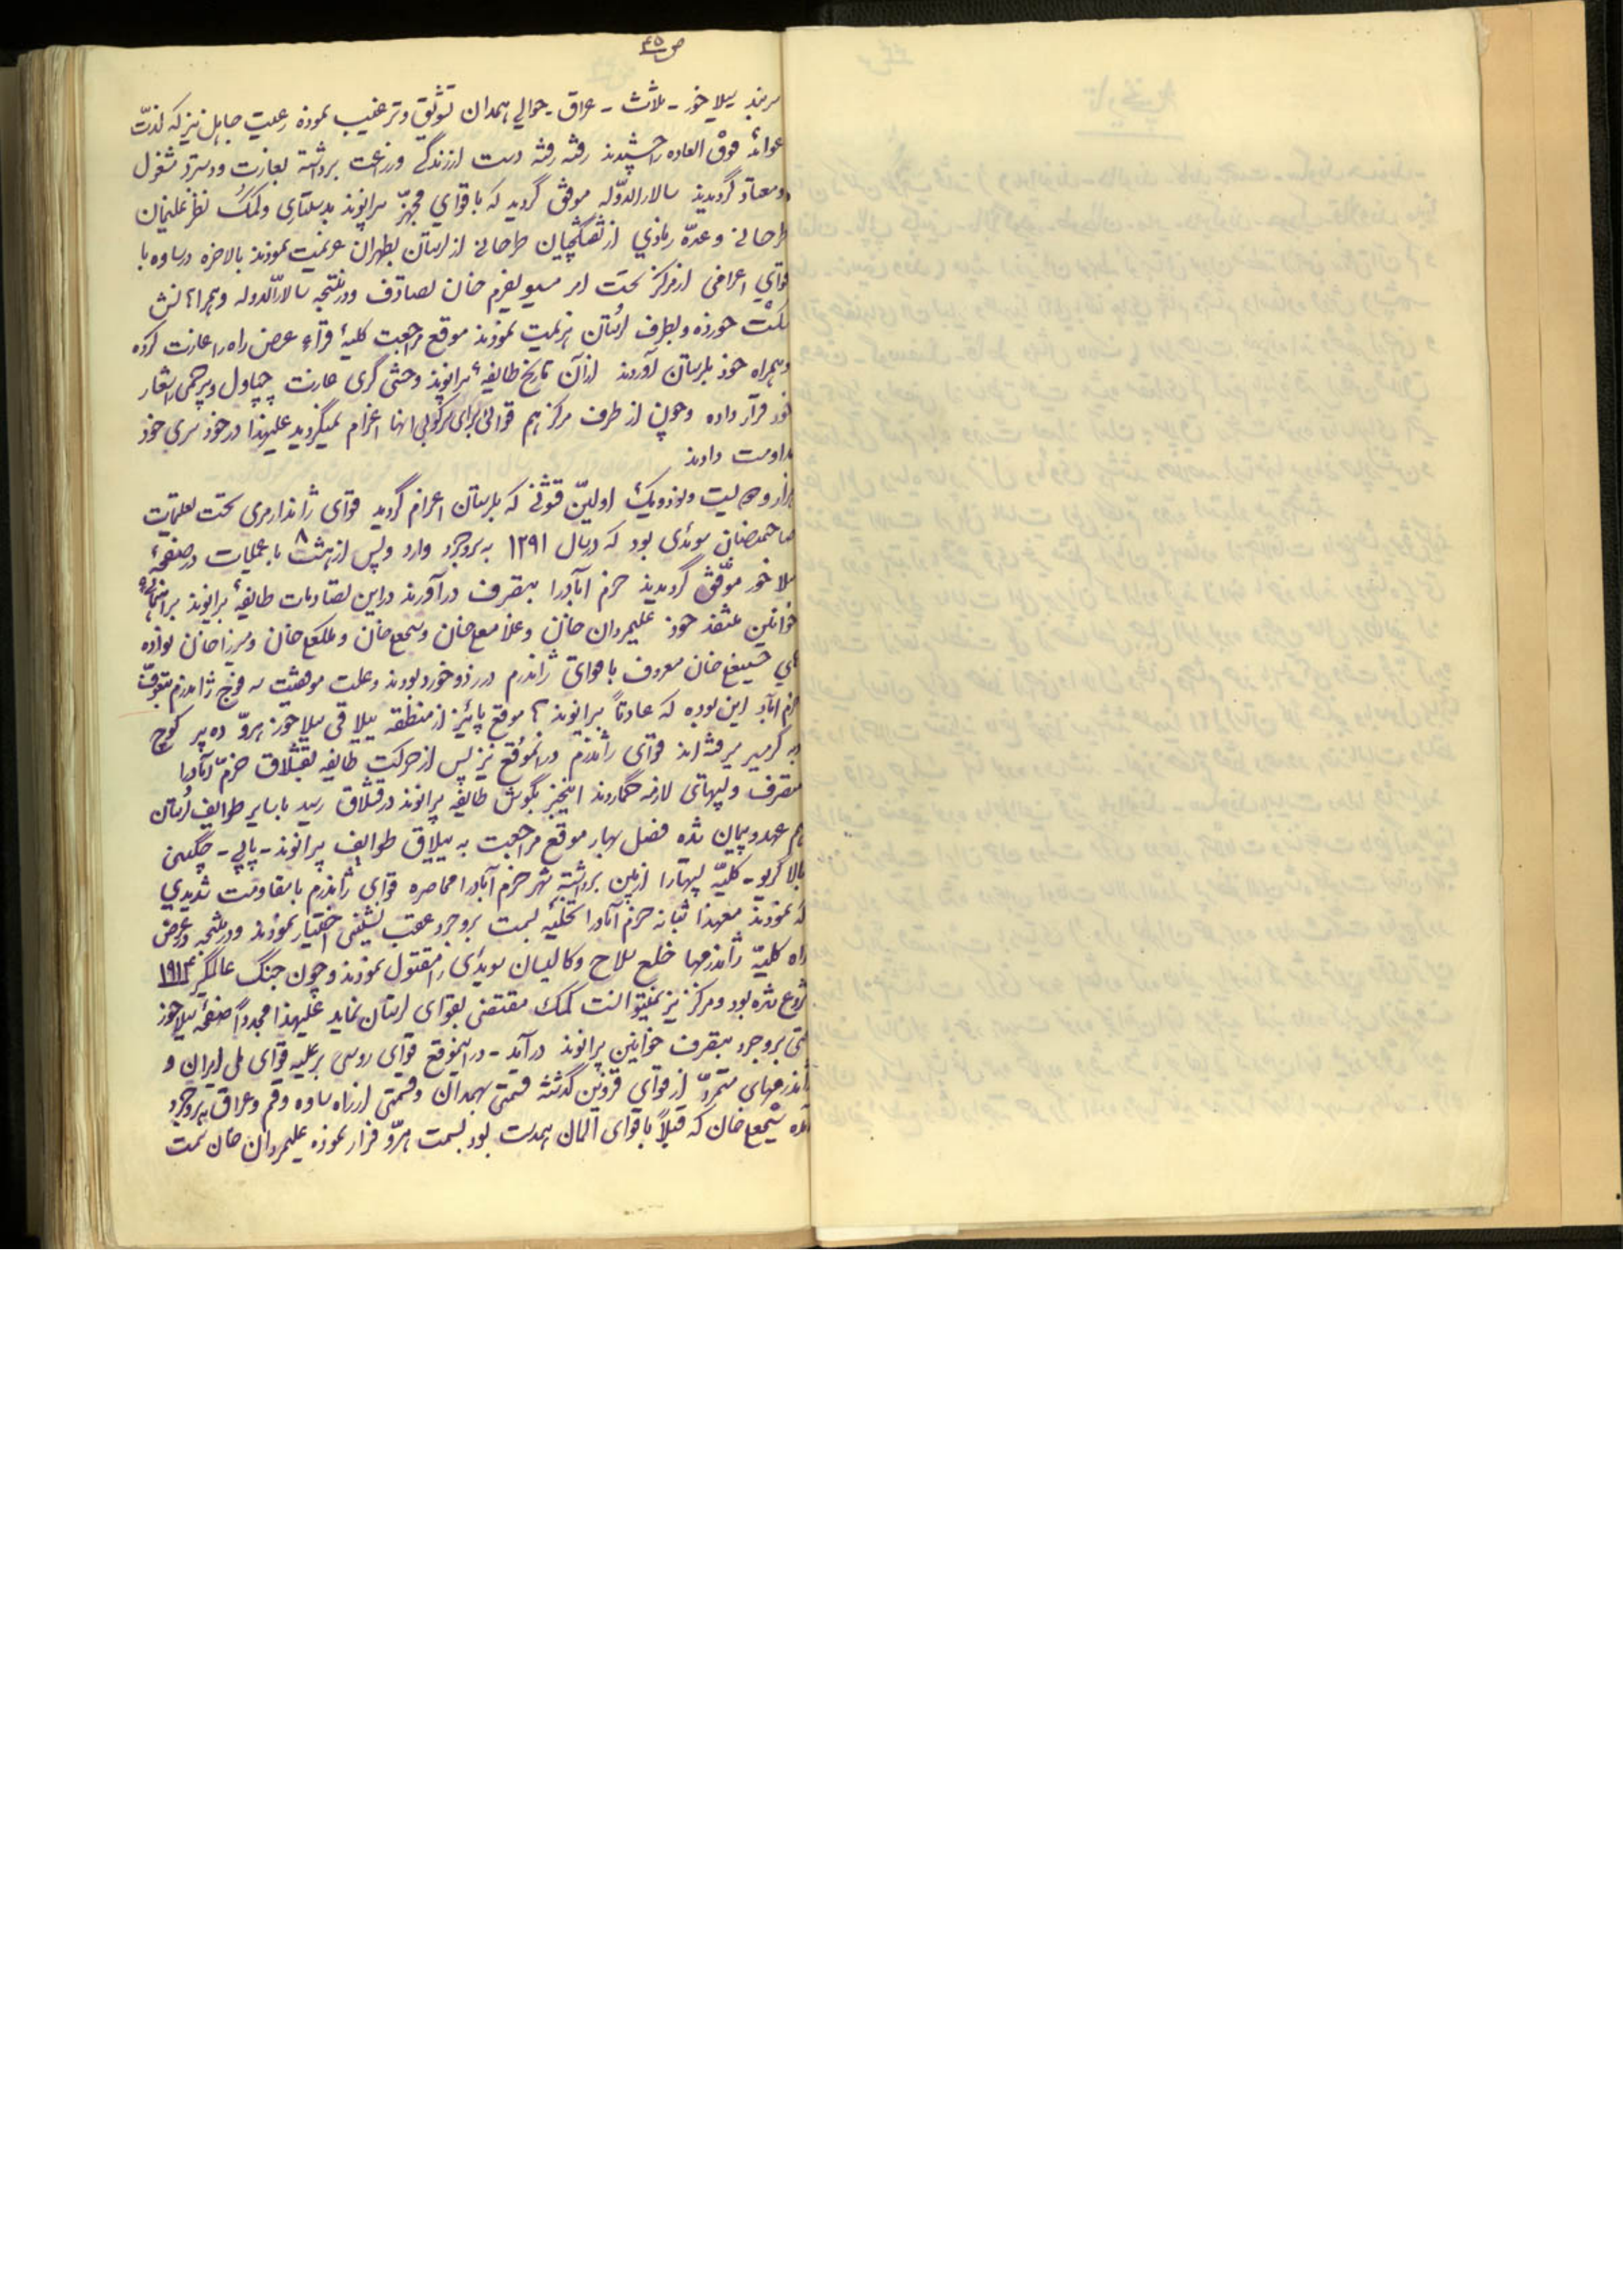 ص ۴۵
سربند سیلاخور - ثلاث - عراق - حوالی همدان تشویق و ترغیب نموده رعیت جاهل نیز که لذت
عوائد فوق العاده را چشیدند رفته رفته دست از زندگی و زراعت برداشته بغارت و دستبرد مشغول
و معتاد گردیدند سالارالدوله موفق گردید که با قوای مجهز بیرانوند بدستیاری و کمک نظرعلیخان
طرحانی و عده زیادی از تفنگچیان طرحانی از لرستان بطهران عزیمت نمودند بالاخره در ساوه با
قوای اعزامی از مرکز تحت امر مسیو یفرم خان تصادف و در نتیجه سالارالدوله و همراهانش
شکست خورده و بطرف لرستان هزیمت نمودند موقع مراجعت کلیهٔ قراء عرض راه را غارت کرده
و همراه خود بلرستان آوردند از آن تاریخ طایفهٔ بیرانوند وحشی گری غارت چپاول و بیرحمی را شعار
خود قرار داده و چون از طرف مرکز هم قوائی برای سرکوبی آنها اعزام نمیگردید علیهذا در خود سری خود
مداومت دادند
هزار و دویست و نود و یک اولین قشونی که بلرستان اعزام گردید قوای ژاندارمری تحت تعلیمات
صاحبمنصبان سوئدی بود که در سال ۱۲۹۱ به بروجرد وارد و پس از هشت ۸ ماه عملیات در صفحهٔ
سیلاخور موفق گردیدند خرم آباد را بتصرف درآورند در این تصادمات طایفهٔ بیرانوند براهنمائی
خوانین متنفذ خود علیمردان خان و غلامعلی خان و شیخعلی خان و ملکعلی خان و میرزا خان نواده
های حسینعلی خان معروف با قوای ژاندرم در زد و خورد بودند و علت موفقیت سه فوج ژاندرم بتصرف
خرم آباد این بوده که عادتاً بیرانوند ها موقع پائیز از منطقه ییلاقی سیلاخور هرو ده پیر کوچ
و به گرمسیر میرفته اند قوای ژاندرم در آنموقع نیز پس از حرکت طایفه بقشلاق خرم آباد را
متصرف و پستهای لازمه گماردند اینخبر بگوش طایفه بیرانوند در قشلاق رسید با سایر طوایف لرستان
هم عهد و پیمان شده فصل بهار موقع مراجعت به ییلاق طوایف بیرانوند - پاپی - چگینی
بالاگریوه - کلیه پستها را از بین برداشته شهر خرم آباد را محاصره قوای ژاندرم با مقاومت شدیدی
که نمودند معهذا شبانه خرم آباد را تخلیه بسمت بروجرد عقب نشینی اختیار نمودند و در نتیجه در عرض
راه کلیه ژاندرمها خلع سلاح و کاپیتان سوئدی را مقتول نمودند و چون جنگ عالمگیر ۱۹۱۴
شروع شده بود و مرکز نیز نمیتوانست کمک مقتضی بقوای لرستان نماید علیهذا مجدداً صفحهٔ سیلاخور
حتی بروجرد بتصرف خوانین بیرانوند درآمد - در اینموقع قوای روسی بر علیه قوای ملی ایران و
ژاندرمهای متمرد از قوای قزوین گذشته قسمتی بهمدان و قسمتی از راه ساوه و قم و عراق به بروجرد
آمده شیخعلی خان که قبلاً با قوای آلمان همدست بود بسمت هرو فرار نموده علیمردان خان سمت